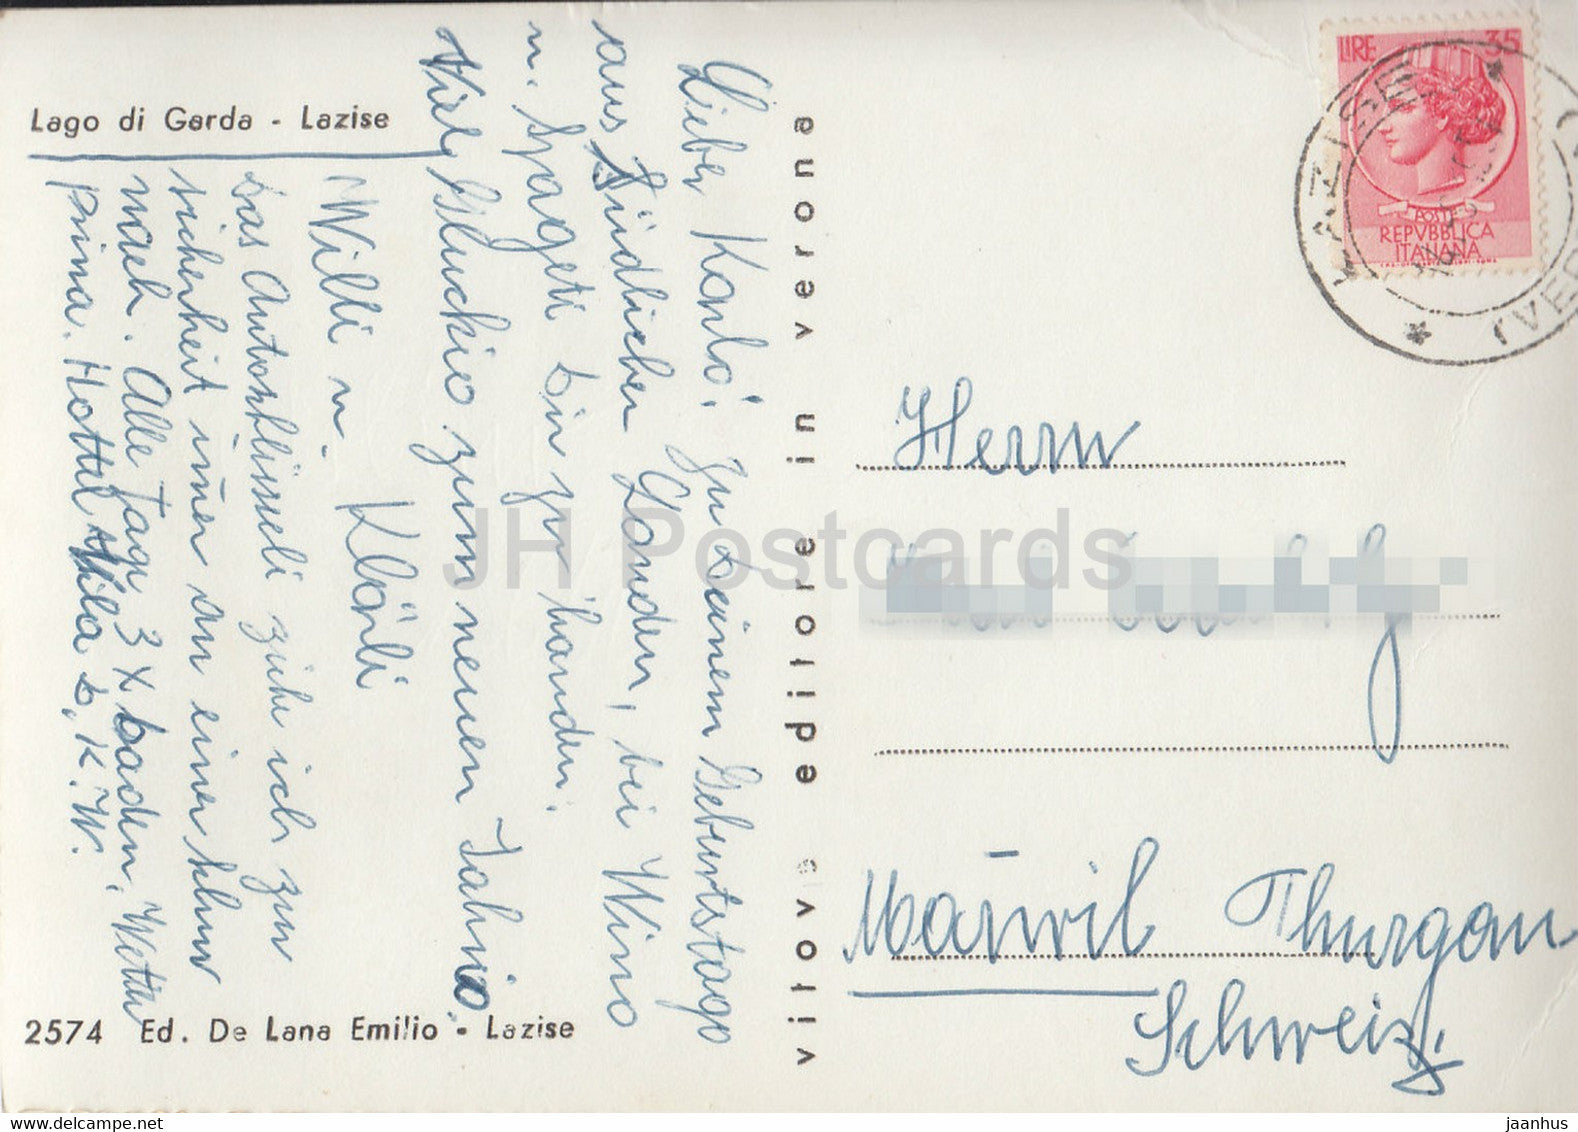 Lago di Garda - Lazise
Lieber Karlo! Zu deinem Geburtstago
aus Südlichen Landen, bei Wino
u. Spageti bin zu handen.
Viel Gluckio zum neuen Jahrio.
Willi u. Klärli
das Autoschlüsseli ziehe ich zur
sicherheit imer an einer schnur
nach. Alle Tage 3 x baden. Wetter
prima. Hottel
K. W.
2574 Ed. De Lana Emilio - Lazise
vitove editore in verona
LIRE 35
POSTE
REPVBBLICA
ITALIANA
LAZISE
(VER
Herrn
Märwil Thurgau
Schweiz
JH Postcards
www.delcampe.net
jaanhus